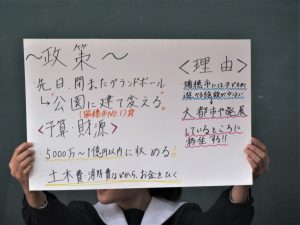 ～政策～
先日、閉まったグランドボール
↳公園に建て変える。
(瑞穂市NO.1)
<予算・財源>
5000万～1億円以内に収める
・土木費・消防費などから、お金をひく
<理由>
瑞穂市には子どもが
遊べる施設が少ない
大都市や発展
しているところに